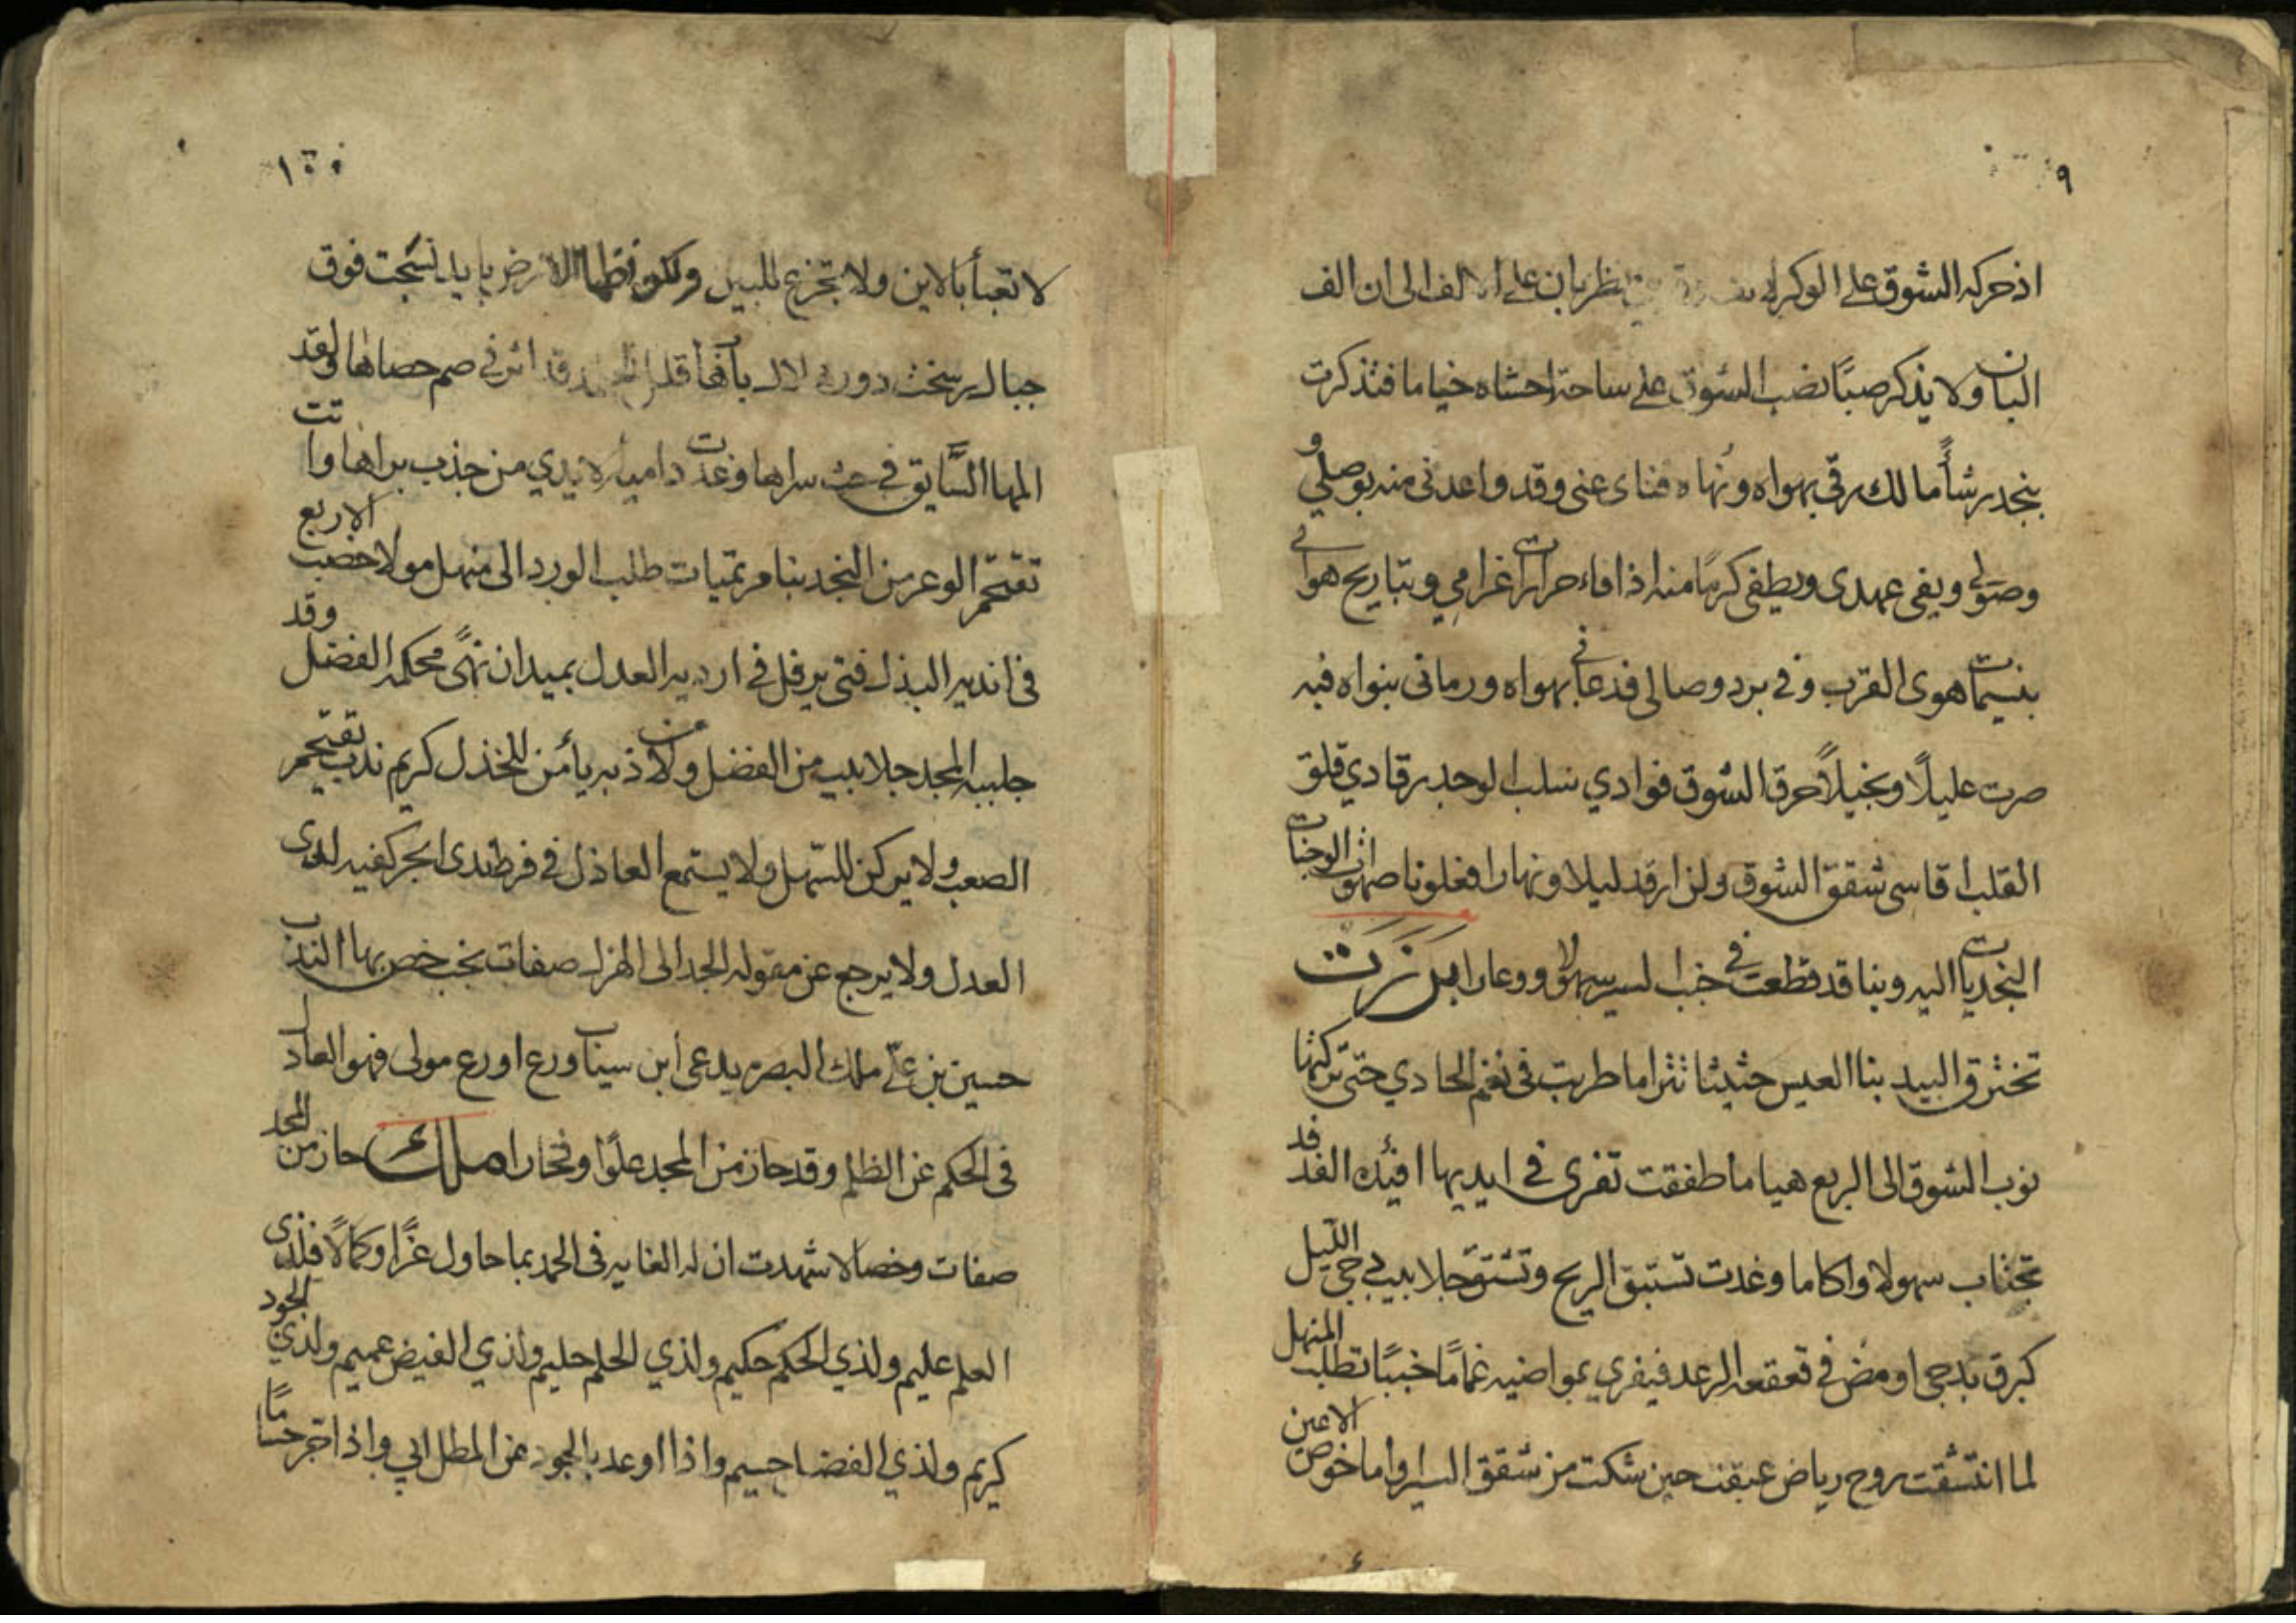 ٩
اذ حركه الشوق على الوكر على الالف الى ان الف
البان ولا يذكر صبًا نصب الشوق على ساحة احشاه خياما فتذكرت
بنجد رشأً ما لك رقي بهواه ونهاه فناى عنى وقد واعدنى منه بوصلي و
وصولي ويفى عهدى ويطفى كربًا منه اذا فاء حرارات غرامي وتباريح هوائى
بنسيمات هوى القرب وفى برد وصالى فدعانى بهواه ورمانى بنواه فبه
صرت عليلًا ونحيلًا حرق الشوق فوادي سلب الوجد رقادي قلق
القلب اقاسى شقق الشوق ولن ارقد ليلا ونهارا فغلونا صهوات الوجنات
النجديات اليه وبنا قد قطعت فى خب السير سهولا ووعارا برزت
تخترق البيد بنا العيس حثيثا تترامى طربت فى نغم الحادي حتى تركتها
نوب الشوق الى الربع هياما طفقت تفرى فى ايديها افئدة الفدفد
تجتاب سهولا واكاما وغدت تستبق الريح وتشتق جلابيب دجى الليل
كبرق بدجى اومض فى قعقعة الرعد فيفري بمواضيه غمامًا خببًا تطلب المنهل
لما انتشقت روح رياض عبقت حين شكت من شقق السير واما خوص الاعين
١٠
لا تعبأ بالاين ولا تجزع للبين الارض بايد نسجت فوق
جبال رسخت قد اثر فى صم حصاها ولقد
المها السابق فى حث سراها وغدت دامية الايدي من جذب براها واتت
تقتحم الوعر من النجد بنا مرتميات طلب الورد الى منهل مولا خصب الاربع
فى اندية البذل فتى يرفل فى اردية العدل بميدان نهًى محكمه الفضل وقد
جلببه المجد جلابيب من الفضل ومن لاذ به يأمن للخذل كريم ندب تقتحم
الصعب ولا يركن للسهل ولا يستمع العاذل فى فرط ندى ابحر كفيه لدى
العدل ولا يرجع عن مقوله الجد الى الهزل صفات نخب خص بها الندب
حسين بن علي ملك البصرة يدعى ابن سيناب ورع اورع مولى فهو العادل
فى الحكم عن الظلم وقد حاز من المجد علوًا وفخارا ملك حاز من المجد
صفات وخصالا شهدت ان له الغايه فى الحمد بما حاول عزًا وكمالًا فلذى
العلم عليم ولذي الحكم حكيم ولذي الحلم حليم ولذي الفيض عميم ولذي الجود
كريم ولذي الفضل جسيم واذا اوعد بالجود عن المطل ابي واذا اجرحتنا